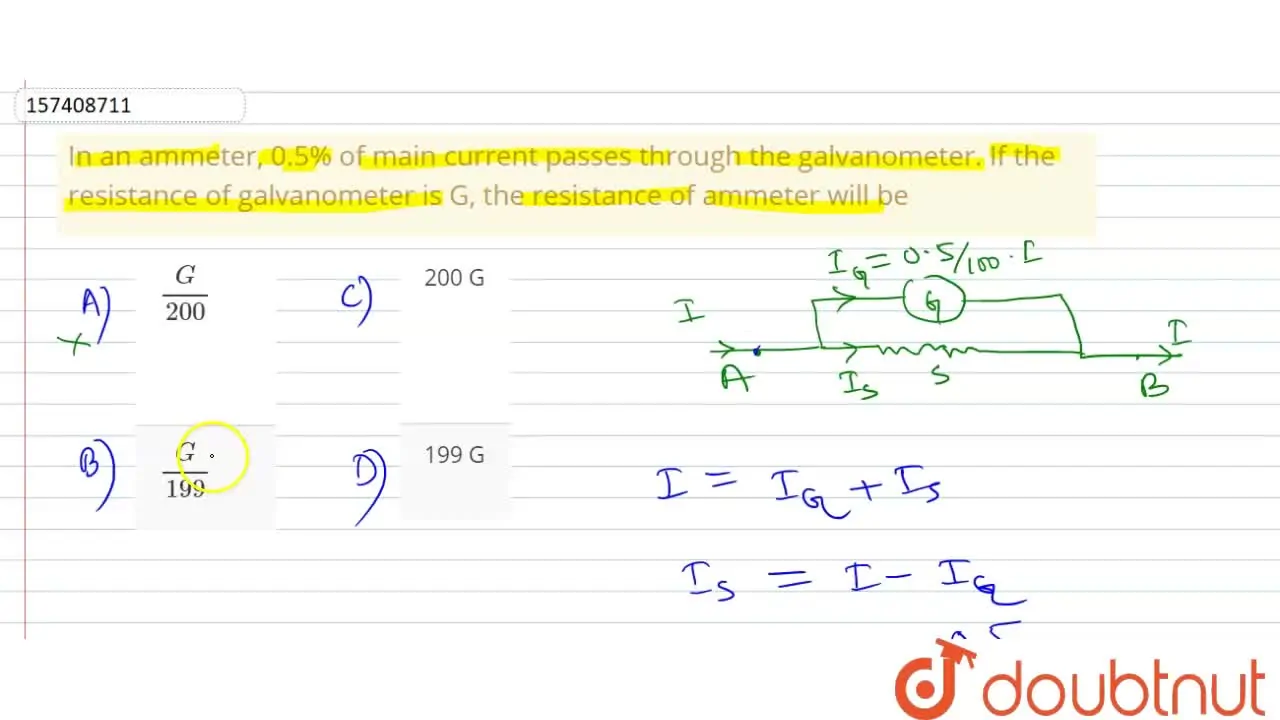 157408711
In an ammeter, 0.5% of main current passes through the galvanometer. If the
resistance of galvanometer is G, the resistance of ammeter will be
A) G/200
C) 200 G
B) G/199
D) 199 G
I_G = 0.5/100 . I
I
G
I
A
I_S
S
B
I = I_G + I_S
I_S = I - I_G
doubtnut